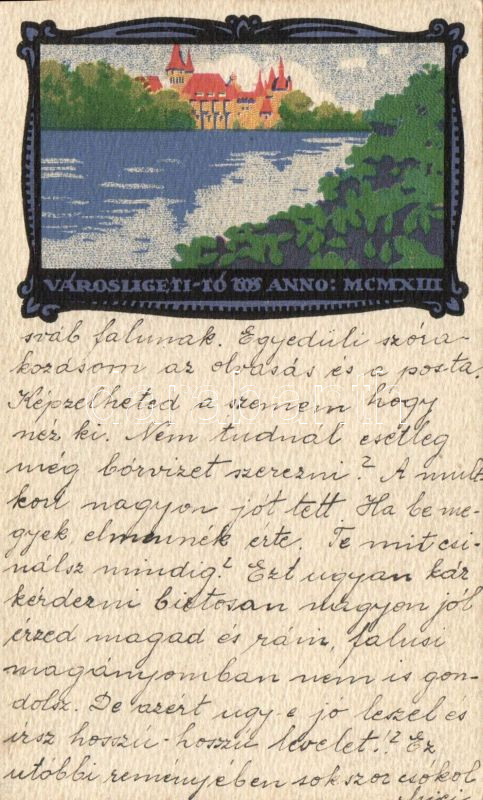 VÁROSLIGETI-TÓ ANNO: MCMXIII
sváb falunak. Egyedüli szóra-
kozásom az olvasás és a posta.
Képzelheted a szemem hogy
néz ki. Nem tudnál esetleg
még bórvizet szerezni? A mult-
kori nagyon jót tett. Ha beme-
gyek, elmennék érte. Te mit csi-
nálsz mindig? Ezt ugyan kár
kérdezni biztosan nagyon jól
érzed magad és rám, falusi
magányomban nem is gon-
dolsz. De azért ugy-e jó leszel és
irsz hosszú-hosszú levelet!? Ez
utóbbi reményében sokszor csókol